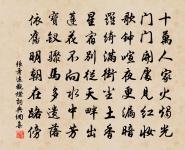 十萬人家火燭光
門門開處見紅妝
歌鐘喧夜更漏暗
羅綺滿街塵土香
星宿別從天畔出
蓮花不向水中芳
寶釵驟馬多遺落
依舊明朝在路傍
張蕭遠觀燈詞典網書